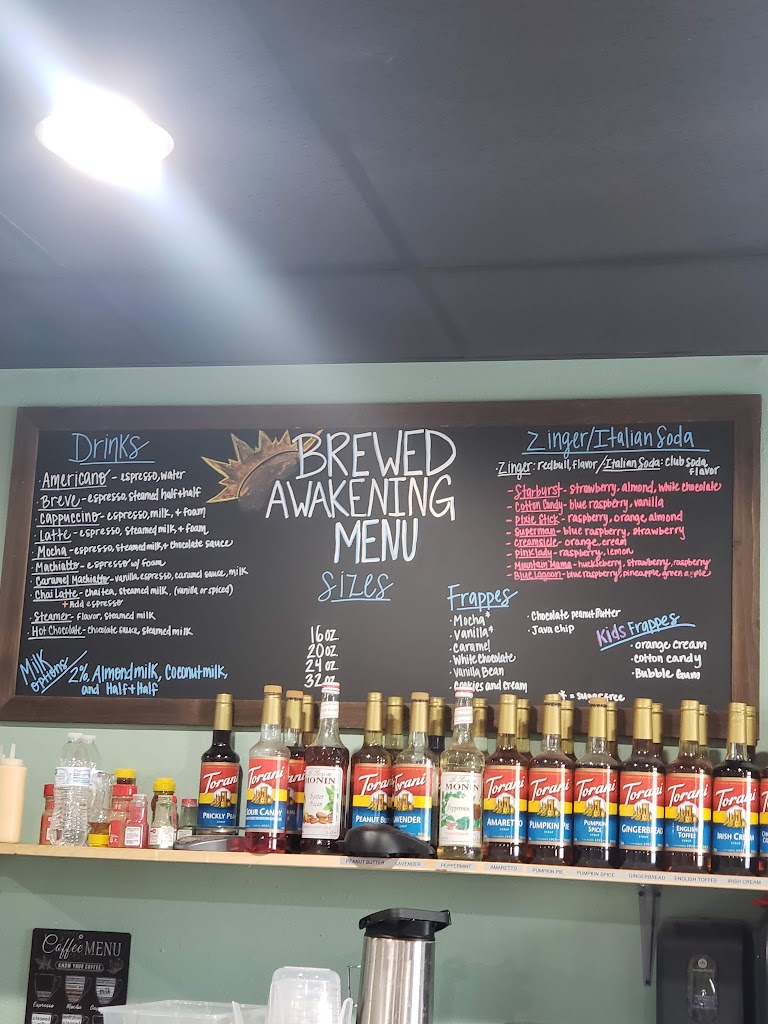 BREWED
AWAKENING
MENU
Drinks
· Americano - espresso, water
· Breve - espresso, steamed half+half
· Cappuccino - espresso, milk, + foam
· Latte - espresso, steamed milk + foam
· Mocha - espresso, steamed milk, + chocolate sauce
· Machiatto - espresso w/ foam
· Caramel Machiatto - vanilla espresso, caramel sauce, milk
· Chai Latte - chai tea, steamed milk, (vanilla or spiced)
+ Add espresso
· Steamer - flavor, steamed milk
· Hot Chocolate - chocolate sauce, steamed milk
Milk options
2%, Almond milk, Coconut milk,
and Half+Half
Sizes
16 oz
20 oz
24 oz
32 oz
Zinger/Italian Soda
· Zinger: redbull, flavor / Italian Soda: club soda,
flavor
- Starburst - strawberry, almond, white chocolate
- Cotton Candy - blue raspberry, vanilla
- Pixie Stick - raspberry, orange, almond
- Superman - blue raspberry, strawberry
- Creamsicle - orange, cream
- Pink Lady - raspberry, lemon
- Mountain Mama - huckleberry, strawberry, raspberry
- Blue Lagoon - blue raspberry, pineapple, green apple
Frappes
· Mocha*
· Vanilla*
· Caramel
· White Chocolate
· Vanilla Bean
· Cookies and Cream
· Chocolate peanut Butter
· Java chip
Kids Frappes
· orange cream
· cotton candy
· Bubble Gum
* = sugar free
Torani
PRICKLY PEAR
Torani
SOUR CANDY
MONIN
Butter Pecan
Torani
PEANUT BUTTER
Torani
LAVENDER
MONIN
Peppermint
Torani
AMARETTO
Torani
PUMPKIN PIE
Torani
PUMPKIN SPICE
Torani
GINGERBREAD
Torani
ENGLISH TOFFEE
Torani
IRISH CREAM
PEANUT BUTTER
LAVENDER
PEPPERMINT
AMARETTO
PUMPKIN PIE
PUMPKIN SPICE
GINGERBREAD
ENGLISH TOFFEE
IRISH CREAM
Coffee MENU
KNOW YOUR COFFEE
Espresso
Mocha